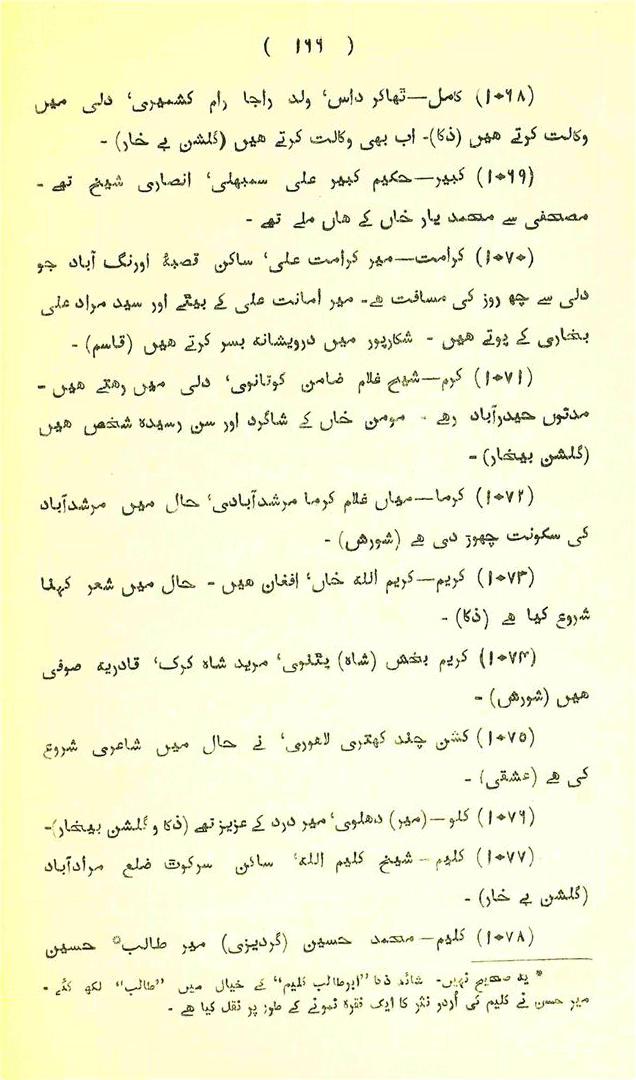 ( ۱۶۶ )
(۱۰۶۸) کامل—ٹھاکر داس، ولد راجا رام کشمیری، دلی میں
وکالت کرتے ھیں (ذکا)- اب بھی وکالت کرتے ھیں (گلشن بے خار) -
(۱۰۶۹) کبیر—حکیم کبیر علی سمبھلی، انصاری شیخ تھے -
مصحفی سے محمد یار خاں کے ھاں ملے تھے -
(۱۰۷۰) کرامت—میر کرامت علی، ساکن قصبۂ اورنگ آباد جو
دلی سے چھ روز کی مسافت ھے- میر امانت علی کے بیٹے اور سید مراد علی
بخاری کے پوتے ھیں - شکارپور میں درویشانہ بسر کرتے ھیں (قاسم) -
(۱۰۷۱) کرم—شیخ غلام ضامن کوتانوی، دلی میں رھتے ھیں -
مدتوں حیدرآباد رھے - مومن خاں کے شاگرد اور سن رسیدہ شخص ھیں
(گلشن بیخار) -
(۱۰۷۲) کرما—میاں غلام کرما مرشدآبادی، حال میں مرشدآباد
کی سکونت چھوڑ دی ھے (شورش) -
(۱۰۷۳) کریم—کریم اللہ خاں، افغان ھیں - حال میں شعر کہنا
شروع کیا ھے (ذکا) -
(۱۰۷۴) کریم بخش (شاہ) پٹنوی، مرید شاہ کرک، قادریہ صوفی
ھیں (شورش) -
(۱۰۷۵) کشن چند کھتری لاھوری، نے حال میں شاعری شروع
کی ھے (عشقی) -
(۱۰۷۶) کلو—(میر) دھلوی، میر درد کے عزیز تھے (ذکا و گلشن بیخار)-
(۱۰۷۷) کلیم—شیخ کلیم اللہ، ساکن سرکوٹ ضلع مرادآباد
(گلشن بے خار) -
(۱۰۷۸) کلیم—محمد حسین (گردیزی) میر طالب* حسین
* یہ صحیح نہیں- شائد ذکا "ابوطالب کلیم" کے خیال میں "طالب" لکھ گئے -
میر حسن نے کلیم کی اُردو نثر کا ایک فقرہ نمونے کے طور پر نقل کیا ھے -